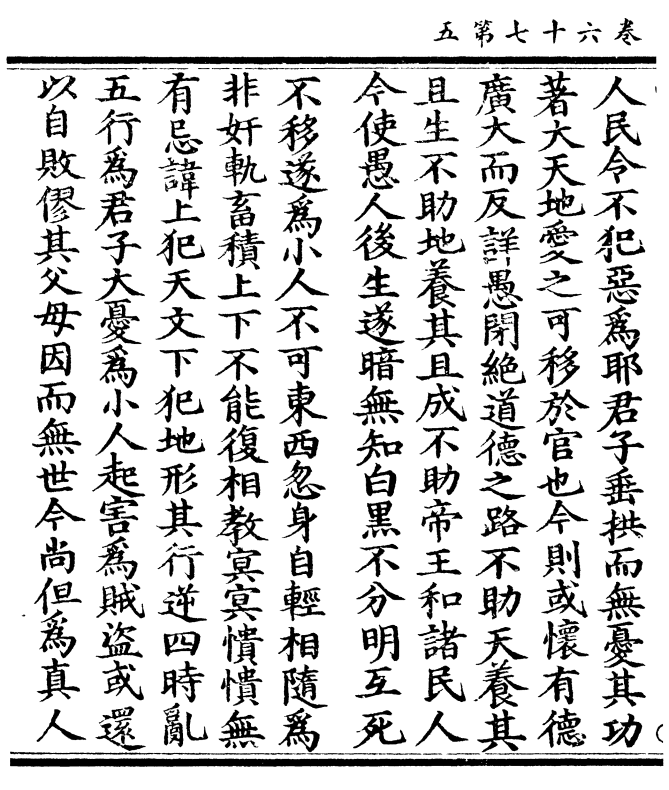 卷六十七第五
人民令不犯惡爲耶君子垂拱而無憂其功
著大天地愛之可移於官也今則或懷有德
廣大而反詳愚閉絶道德之路不助天養其
且生不助地養其且成不助帝王和諸民人
今使愚人後生遂暗無知白黒不分明互死
不移遂爲小人不可東西忽身自輕相隨爲
非奸軌畜積上下不能復相教冥冥憒憒無
有忌諱上犯天文下犯地形其行逆四時亂
五行爲君子大憂爲小人起害爲賊盜或還
以自敗僇其父母因而無世今尚但爲真人